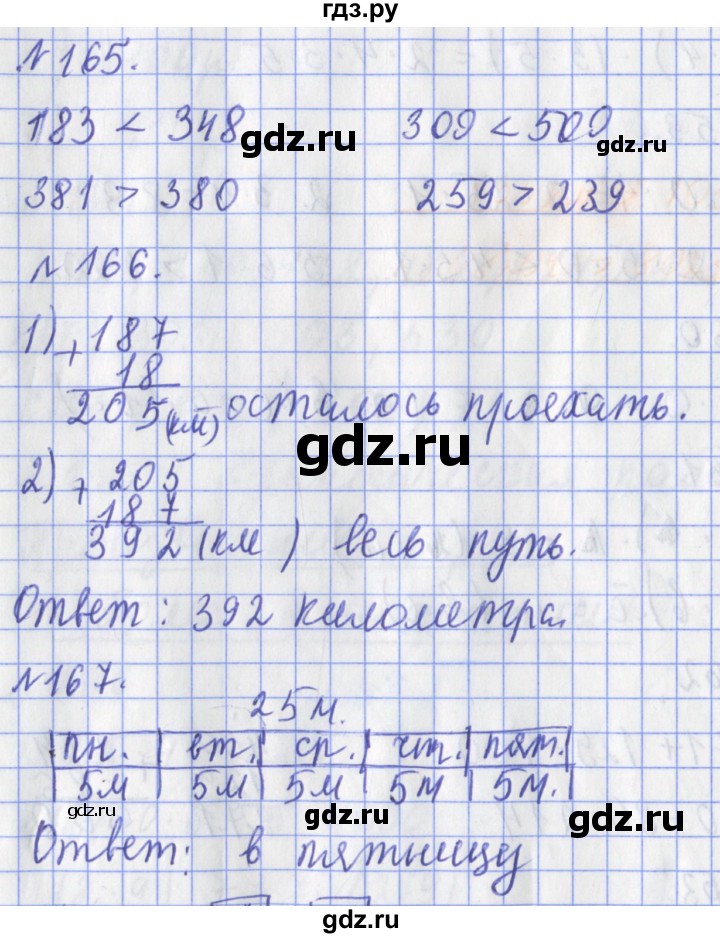 гдз.ру
№ 165.
183 < 348 309 < 509
gdz.ru
gdz.ru
381 > 380 259 > 239
№ 166.
1) + 187
18
205 (км) осталось проехать.
gdz.ru
2) + 205
187
392 (км) весь путь.
Ответ: 392 километра.
№ 167.
25 м.
пн. вт. ср. чт. пят.
5м 5м 5м 5м 5м.
gdz.ru
gdz.ru
Ответ: в пятницу
gdz.ru